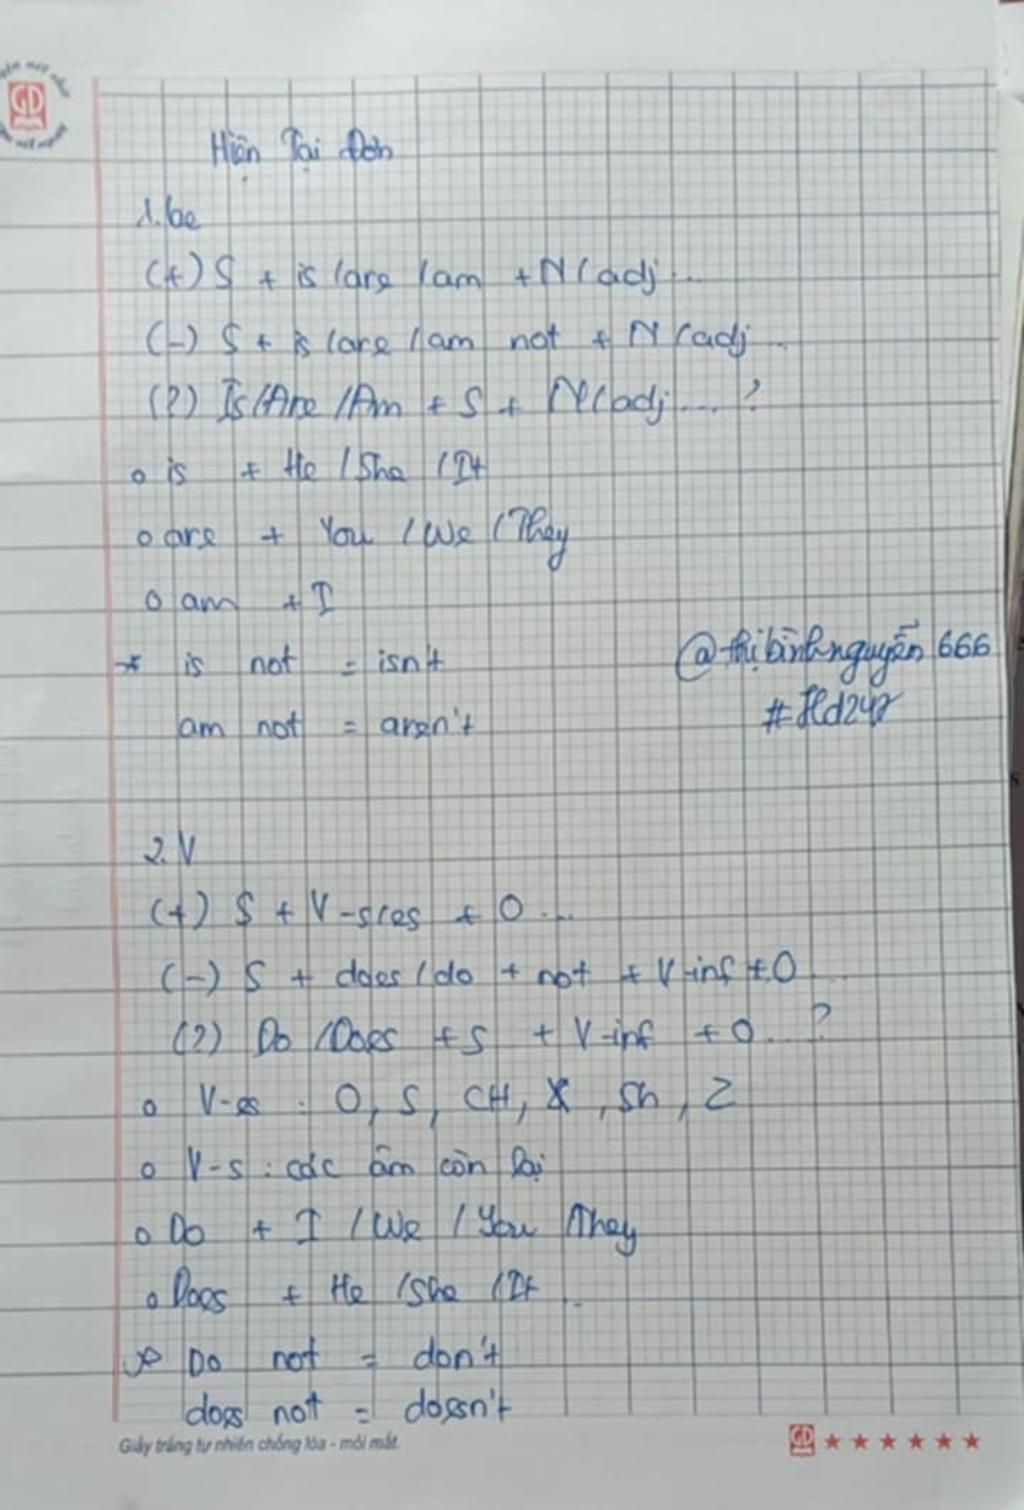 Hiện Tại Đơn
1. be
(+) S + is / are / am + N / adj ...
(-) S + is / are / am not + N / adj ...
(?) Is / Are / Am + S + N / adj .... ?
o is + He / She / It
o are + You / We / They
o am + I
* is not = isn't
@thịbìnhnguyễn 666
am not = aren't
2. V
(+) S + V-s/es + O ...
(-) S + does / do + not + V-inf + O
(?) Do / Does + S + V-inf + O .... ?
o V-es : O, S, CH, X, Sh, Z
o V-s : các âm còn lại
o Do + I / We / You / They
o Does + He / She / It .
* Do not = don't
does not = doesn't
Giấy trắng tự nhiên chống lóa - mỏi mắt
GD